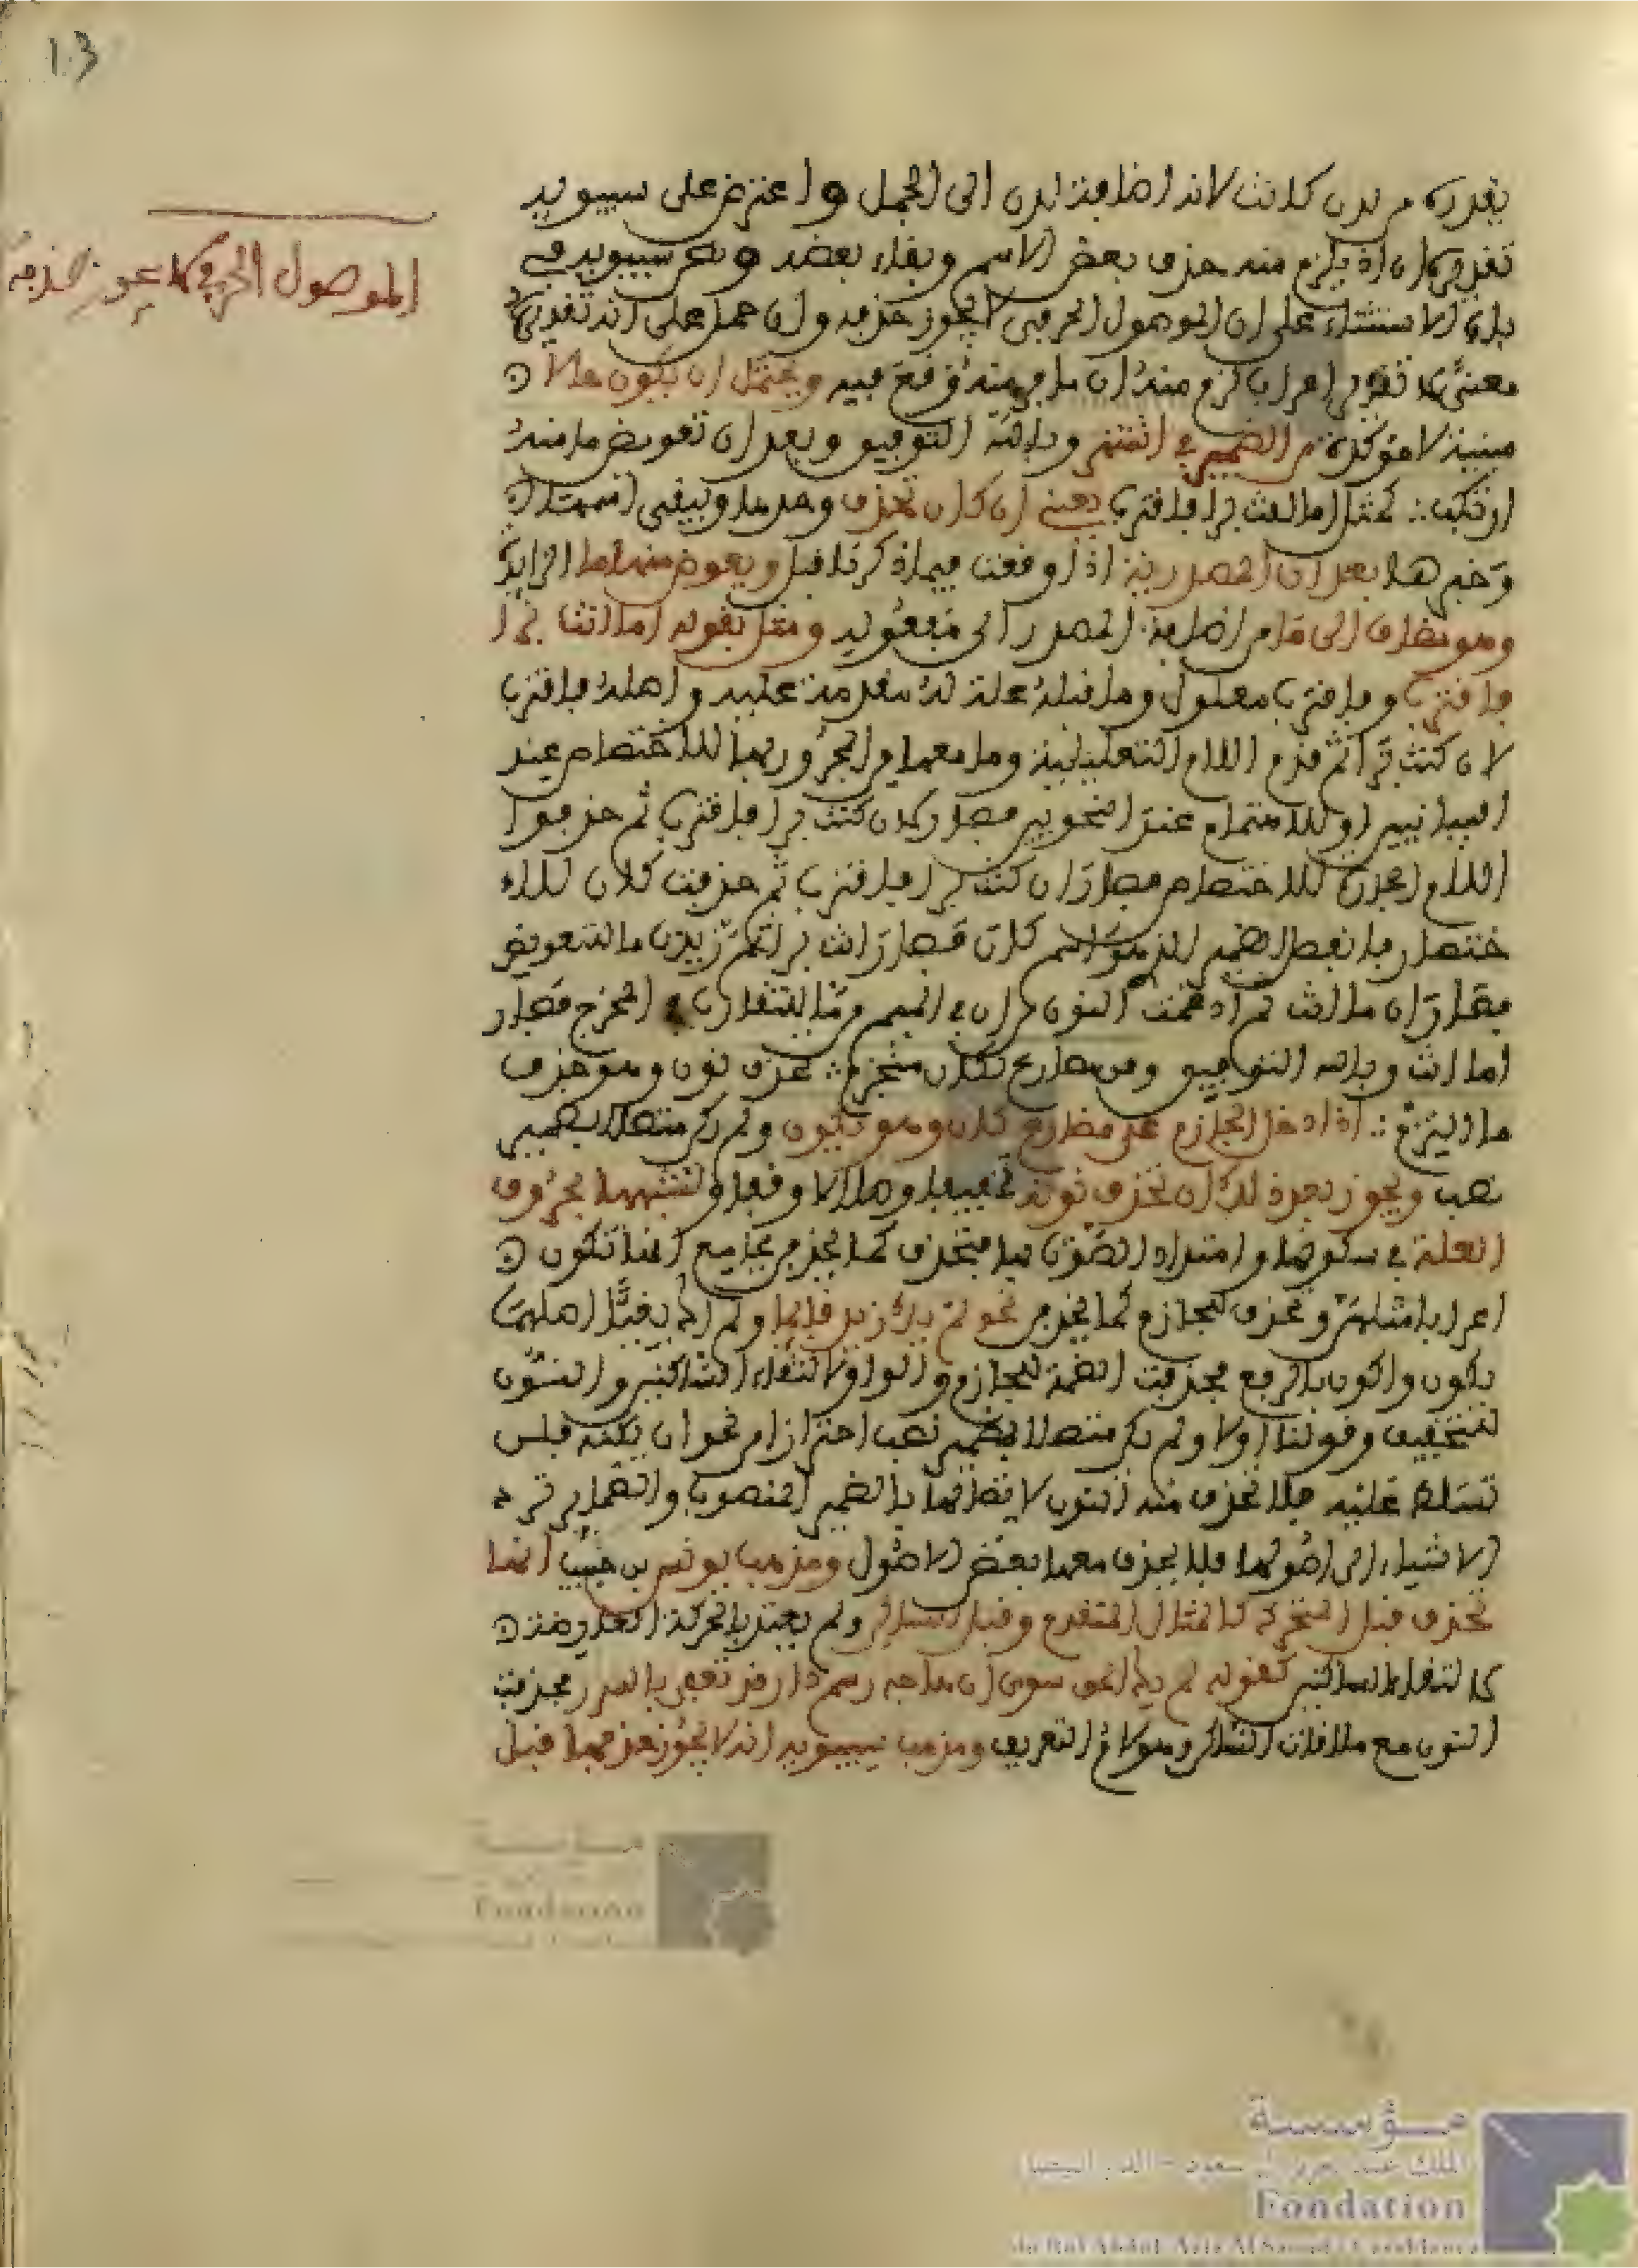 103
يقدره من لدن كانت لانه اضافة لدن الى الجمل واعترض على سيبويه
الموصول الحرفي لا يجوز حذفه
تقديره ان اذ يلزم منه حذف بعض الاسم وبقاء بعضه ونص سيبويه في
باب الاستثناء على ان الموصول الحرفي لا يجوز حذفه وان حمل على انه تقدير
معنى لا تقدير اعراب لزم منه ان ما فر منه وقع فيه ويحتمل ان يكون حالا
مبينة لا مؤكدة من الضمير في وبالله التوفيق وبعد ان تعويض ما منه
ارتكب كمثل اما انت برا فاقترب يعني ان كان تحذف وحدها ويبقى اسمها
وخبرها بعد ان المصدرية اذا وقعت فيما ذكرنا قبل ويعوض منها ما الزايدة
وهو مضاف الى ما من اضافة المصدر الى مفعوله ومثل بقوله اما انت برا
فاقترب وفاقترب معلول وما قبله علة له مقدمة عليه واصله فاقترب
لان كنت برا ثم قدم اللام التعليلية وما معها من المجرور بها للاختصاص عند
البيانيين او للاهتمام عند النحويين فصار لان كنت برا فاقترب ثم حذفوا
اللام الجارة للاختصار فصار ان كنت برا فاقترب ثم حذفت كان للا
ختصار فانفصل الضمير الذي هو اسم كان فصار ان انت برا ثم زيدت ما للتعويض
فصار ان ما انت ثم ادغمت النون من ان في الميم من ما للتقارب في المخرج فصار
اما انت وبالله التوفيق ومن مضارع لكان منجزم تحذف نون وهو حذف
ما التزم اذا دخل الجازم على مضارع كان وهو يكون ولم يكن متصلا بضمير
نصب ويجوز بعد ذلك ان تحذف نونه تخفيفا وصلا لا وقفا ولشبهها بحروف
العلة في سكونها وامتداد الصوت بها فتحذف كما تحذف بجامع انها تكون
اعرابا مثلهن وتحذف للجازم كما تحذف نحو لم يك زيد قايما ولم اك بغيا اصلهما
يكون واكون بالرفع فحذفت الضمة للجازم والواو لالتقاء الساكنين والنون
للتخفيف وقولنا اولا ولم يكن متصلا بضمير نصب احترازا من نحو ان يكنه فلن
تسلط عليه فلا تحذف منه النون لاتصالها بالضمير المنصوب والضماير ترد
الاشياء الى اصولها فلا يحذف معها بعض الاصول ومذهب يونس بن حبيب انها
تحذف قبل المتحرك كالمثال المتقدم وقبل الساكن ولم يعتد بالحركة العارضة
لالتقاء الساكنين كقوله لم يك الحق سوى ان هاجه رسم دار قد تعفى بالسرر فحذفت
النون مع ملاقات الساكن وهو لام التعريف ومذهب سيبويه انه لا يجوز حذفها قبل
مؤسسة
Fondation
مؤسسة
الملك عبد العزيز آل سعود - الدار البيضاء
Fondation
du Roi Abdul-Aziz Al Saoud - Casablanca